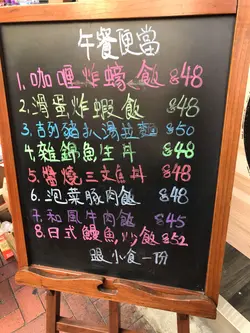 午餐便當
1.咖喱炸蠔飯 $48
2.滑蛋炸蝦飯 $48
3.吉列豬扒湯拉麵 $50
4.雜錦魚生丼 $48
5.醬燒三文魚丼 $48
6.泡菜豚肉飯 $48
7.和風牛肉飯 $45
8.日式鰻魚炒飯 $52
跟小食一份